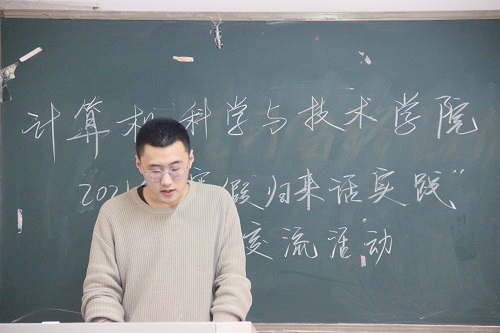 计算机科学与技术学院
202 假归来话实践"
交流活动